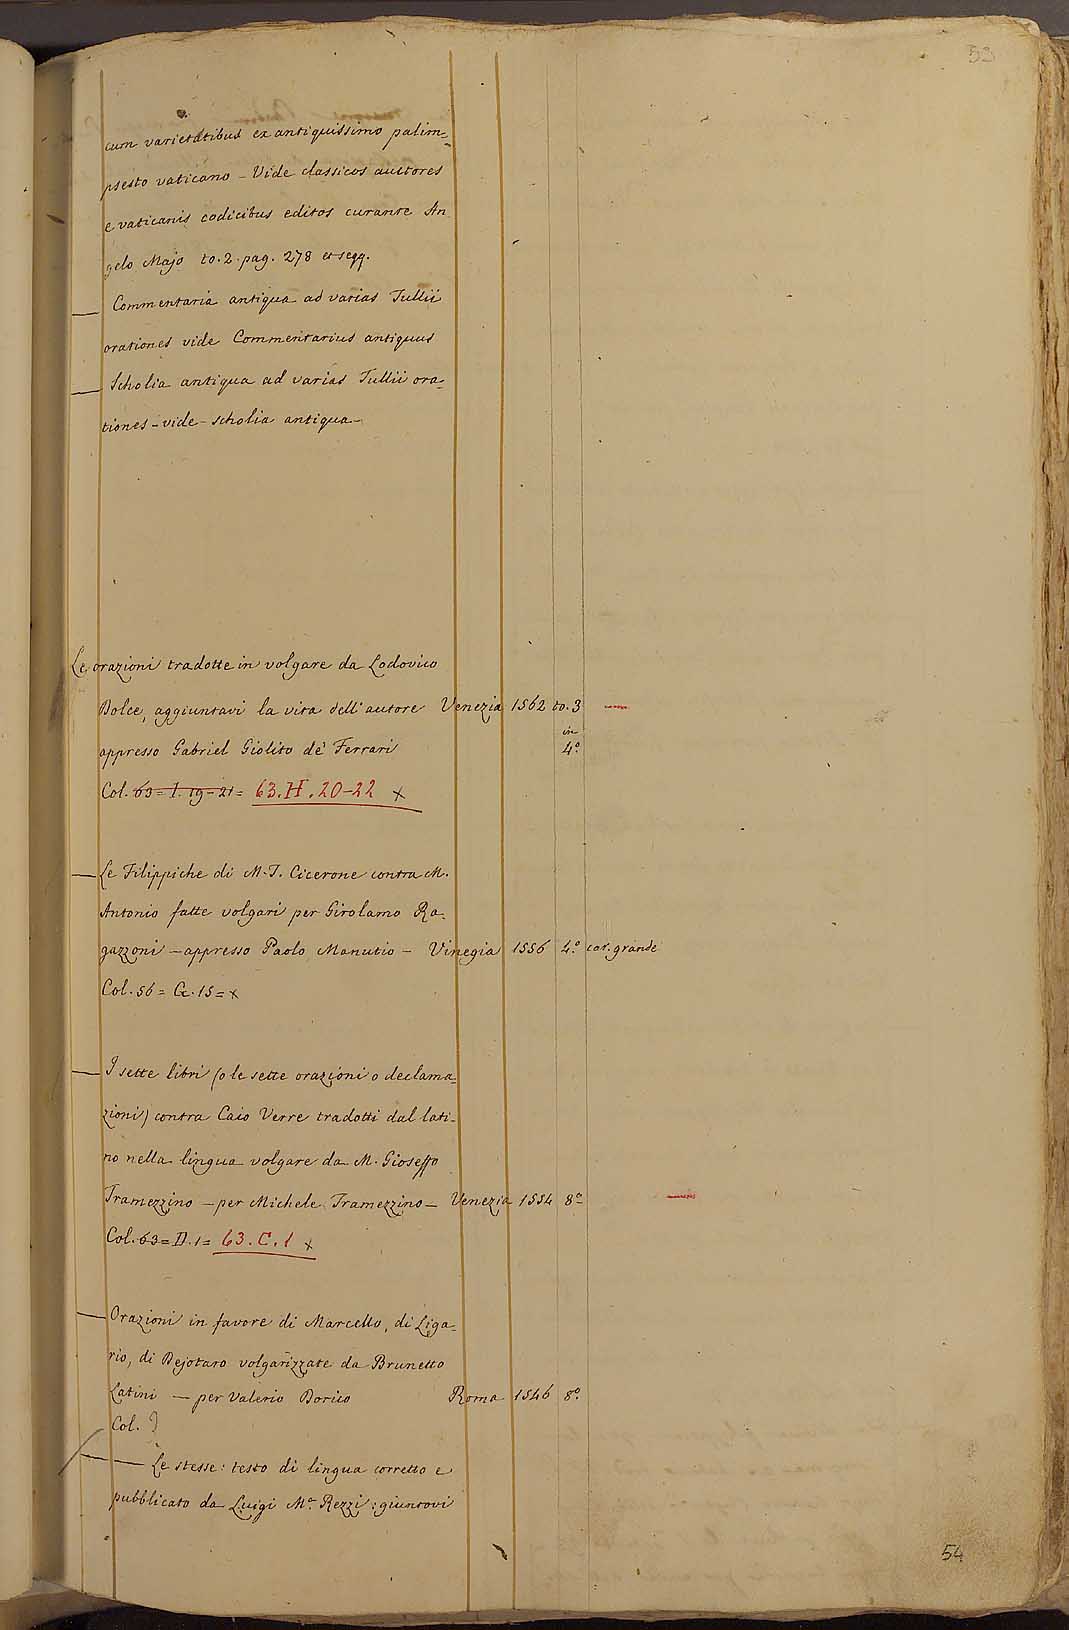 53
cum varietatibus ex antiquissimo palim=
psesto vaticano - Vide classicos auctores
e vaticanis codicibus editos curante An
gelo Majo to. 2. pag. 278 et seqq.
— Commentaria antiqua ad varias Tullii
orationes vide Commentarius antiquus
— Scholia antiqua ad varias Tullii ora=
tiones - vide - scholia antiqua -
Le orazioni tradotte in volgare da Lodovico
Dolce, aggiuntavi la vita dell' autore Venezia 1562 to. 3
in
appresso Gabriel Giolito de' Ferrari 4.º
Col. 63 = I. 19 - 21 = 63. H. 20-22 x
— Le Filippiche di M. T. Cicerone contra M.
Antonio fatte volgari per Girolamo Ra=
gazzoni - appresso Paolo Manutio - Vinegia 1556 4.º car. grande
Col. 56 = G. 15 = x
— I sette libri (o le sette orazioni o declama=
zioni) contra Caio Verre tradotti dal lati=
no nella lingua volgare da M. Gioseffo
Tramezzino - per Michele Tramezzino - Venezia 1554 8º
Col. 63 = D. 1 = 63. C. 1 x
— Orazioni in favore di Marcello, di Liga=
rio, di Dejotaro volgarizzate da Brunetto
Latini - per Valerio Dorico Roma 1546 8º.
Col. ?
— Le stesse: testo di lingua corretto e
pubblicato da Luigi M.ª Rezzi: giuntovi
54